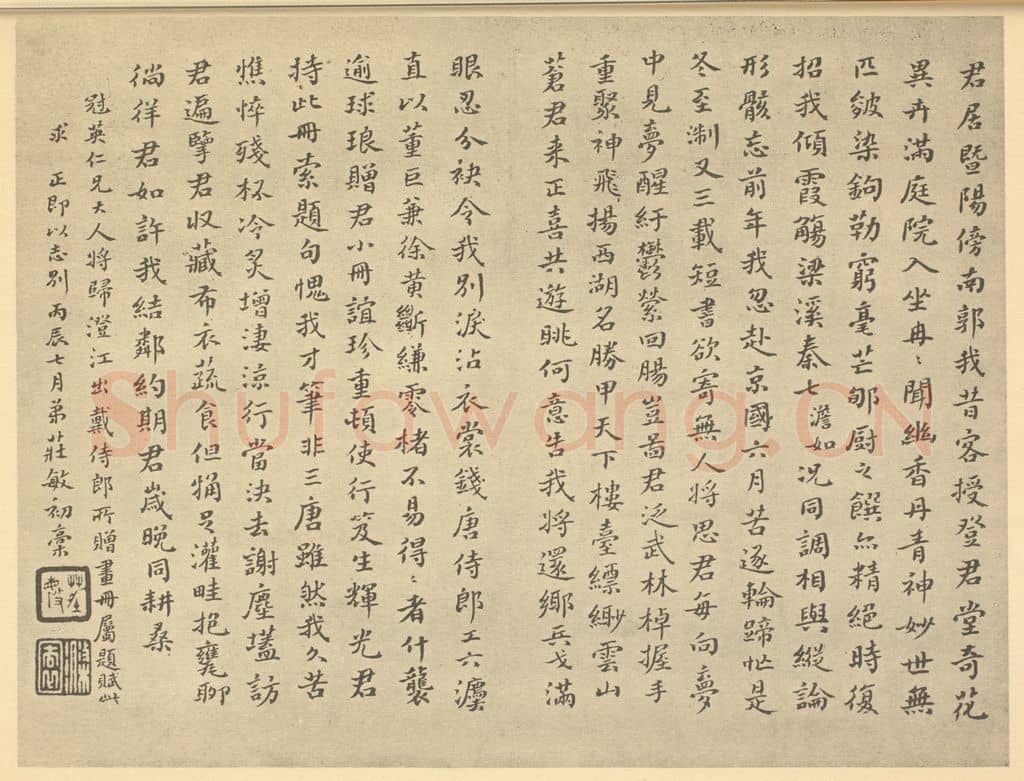 君居暨陽傍南郭我昔客授登君堂奇花
異卉滿庭院入坐冉〻聞幽香丹青神妙世無
匹皴染鉤勒窮毫芒郇厨之饌亦精絕時復
招我傾霞觴梁溪秦七澹如況同調相與縱論
形骸忘前年我忽赴京國六月苦逐輪蹄忙是
冬至淛又三載短書欲寄無人將思君每向夢
中見夢醒紆鬱縈回腸豈啚君泛武林棹握手
重聚神飛揚西湖名勝甲天下樓臺縹緲雲山
蒼君来正喜共遊眺何意告我將還鄉兵戈滿
眼忍分袂令我別淚沾衣裳錢唐侍郎工六灋
直以董巨兼徐黃斷縑零楮不易得〻者什襲
逾球琅贈君小冊誼珍重頓使行笈生輝光君
持此冊索題句愧我才筆非三唐雖然我久苦
憔悴殘杯冷炙增淒涼行當決去謝塵壒訪
君遍擥君收藏布衣蔬食但犕足灌畦抱甕聊
徜徉君如許我結鄰約期君歲晚同耕桑
冠英仁兄大人將歸澄江出戴侍郎所贈畫冊屬題賦此
求正即以志別丙辰七月弟莊敏初稾
Shufawang.CN